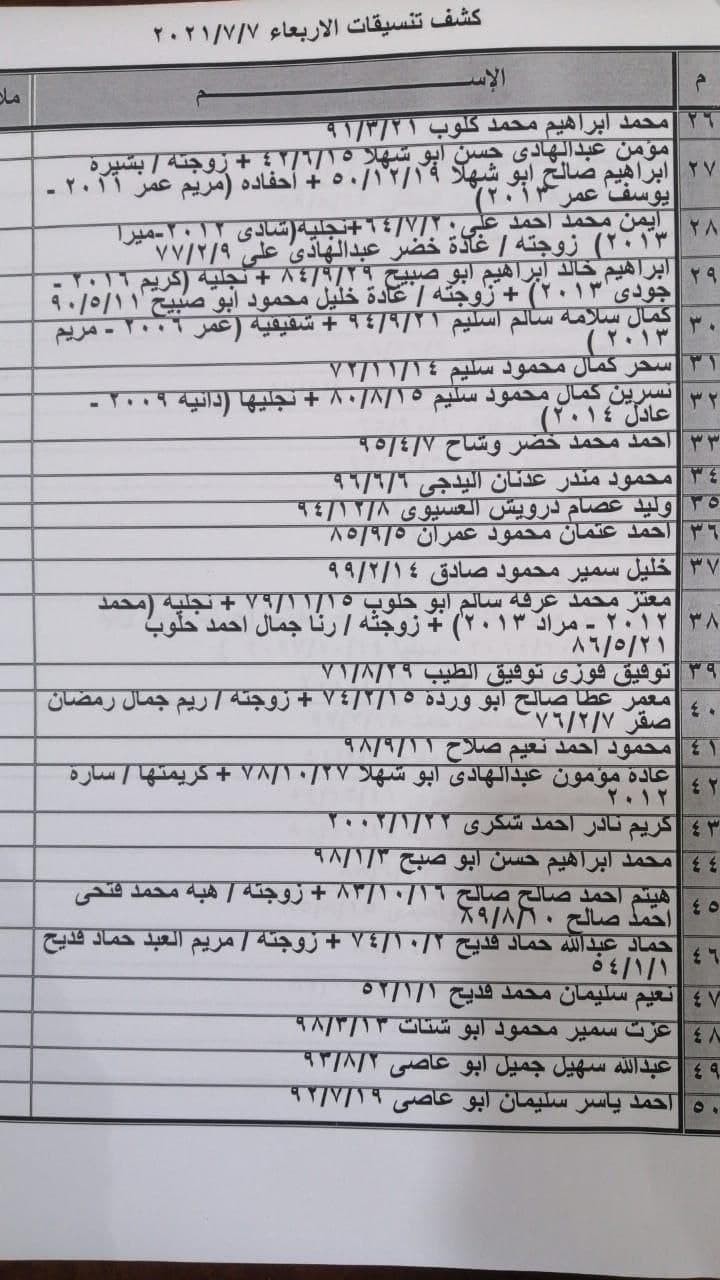 كشف تنسيقات الاربعاء ٢٠٢١/٧/٧
م الإســـــــــم ملا
٢٦ محمد ابراهيم محمد كلوب ٩١/٣/٢١
٢٧ مؤمن عبدالهادى حسن ابو شهلا ٤٢/٦/١٥ + زوجته / بشيرة
ابراهيم صالح ابو شهلا ٥٠/١٢/١٩ + احفاده (مريم عمر ٢٠١١ -
يوسف عمر ٢٠١٣)
٢٨ ايمن محمد احمد على ٦٤/٧/٢٠+نجليه(شادى ٢٠١٢-ميرا
٢٠١٣) زوجته / غادة خضر عبدالهادى على ٧٧/٢/٩
٢٩ ابراهيم خالد ابراهيم ابو صبيح ٨٤/٩/٢٩ + نجليه (كريم ٢٠١٦ -
جودى ٢٠١٣) + زوجته / غادة خليل محمود ابو صبيح ٩٠/٥/١١
٣٠ كمال سلامه سالم اسليم ٩٤/٩/٢١ + شقيقيه (عمر ٢٠٠٦ - مريم
٢٠١٣ )
٣١ سحر كمال محمود سليم ٧٢/١١/١٤
٣٢ نسرين كمال محمود سليم ٨٠/٨/١٥ + نجليها (دانيه ٢٠٠٩ -
عادل ٢٠١٤)
٣٣ احمد محمد خضر وشاح ٩٥/٤/٧
٣٤ محمود منذر عدنان اليدجى ٩٦/٦/٦
٣٥ وليد عصام درويش العسيوى ٩٤/١٢/٨
٣٦ احمد عثمان محمود عمران ٨٥/٩/٥
٣٧ خليل سمير محمود صادق ٩٩/٢/١٤
٣٨ معتز محمد عرفه سالم ابو حلوب ٧٩/١١/١٥ + نجليه (محمد
٢٠١٢ - مراد ٢٠١٣) + زوجته / رنا جمال احمد حلوب
٨٦/٥/٢١
٣٩ توفيق فوزى توفيق الطيب ٧١/٨/٢٩
٤٠ معمر عطا صالح ابو وردة ٧٤/٢/١٥ + زوجته / ريم جمال رمضان
صقر ٧٦/٢/٧
٤١ محمود احمد نعيم صلاح ٩٨/٩/١١
٤٢ غادة مؤمون عبدالهادى ابو شهلا ٧٨/١٠/٢٧ + كريمتها / سارة
٢٠١٢
٤٣ كريم نادر احمد شكرى ٢٠٠٢/١/٢٢
٤٤ محمد ابراهيم حسن ابو صبح ٩٨/١/٣
٤٥ هيثم احمد صالح صالح ٨٣/١٠/١٦ + زوجته / هبه محمد فتحى
احمد صالح ٨٩/٨/١٠
٤٦ حماد عبدالله حماد قديح ٧٤/١٠/٢ + زوجته / مريم العبد حماد قديح
٥٤/١/١
٤٧ نعيم سليمان محمد قديح ٥٢/١/١
٤٨ عزت سمير محمود ابو شتات ٩٨/٣/١٣
٤٩ عبدالله سهيل جميل ابو عاصى ٩٣/٨/٢
٥٠ احمد ياسر سليمان ابو عاصى ٩٢/٧/١٩